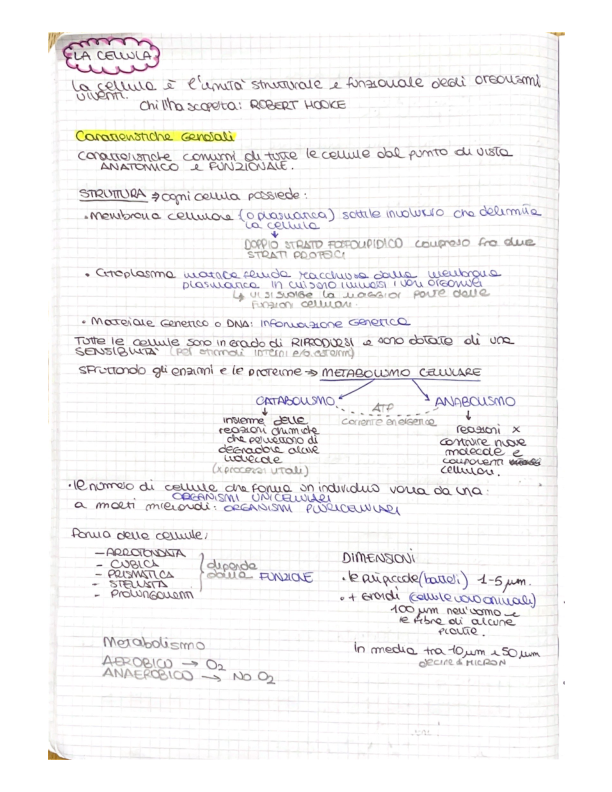 LA CELLULA
La cellula è l'unità strutturale e funzionale degli organismi
viventi.
chi l'ha scoperta: ROBERT HOOKE
Caratteristiche Generali
Caratteristiche comuni di tutte le cellule dal punto di vista
ANATOMICO e FUNZIONALE.
STRUTTURA → ogni cellula possiede:
• Membrana cellulare (o plasmatica) sottile involucro che delimita
la cellula
DOPPIO STRATO FOSFOLIPIDICO compreso fra due
STRATI PROTEICI
• Citoplasma materia fluida racchiusa dalla membrana
plasmatica in cui sono immersi i vari organuli
↳ vi si svolge la maggior parte delle
funzioni cellulari.
• Materiale Genetico o DNA: informazione Genetica
Tutte le cellule sono in grado di RIPRODURSI e sono dotate di una
SENSIBILITÀ (per stimoli interni e/o esterni)
Sfruttando gli enzimi e le proteine → METABOLISMO CELLULARE
CATABOLISMO ATP ANABOLISMO
corrente energetica
insieme delle
reazioni chimiche
che permettono di
degradare alcune
molecole
(x processi vitali)
reazioni x
costruire nuove
molecole e
componenti
cellulari.
• le numero di cellule che forma un individuo varia da una:
ORGANISMI UNICELLULARI
a molti miliardi: ORGANISMI PLURICELLULARI
Forma delle cellule:
- ARROTONDATA
- CUBICA
- PRISMATICA
- STELLATA
- Prolungamenti
dipende
dalla FUNZIONE
DIMENSIONI
• le più piccole (batteri) 1-5 µm.
• + Grandi (cellule uovo animali)
100 µm nell'uomo e
le fibre di alcune
piante.
In media tra 10 µm e 50 µm
decine di MICRON
Metabolismo
AEROBICO → O2
ANAEROBICO → No O2